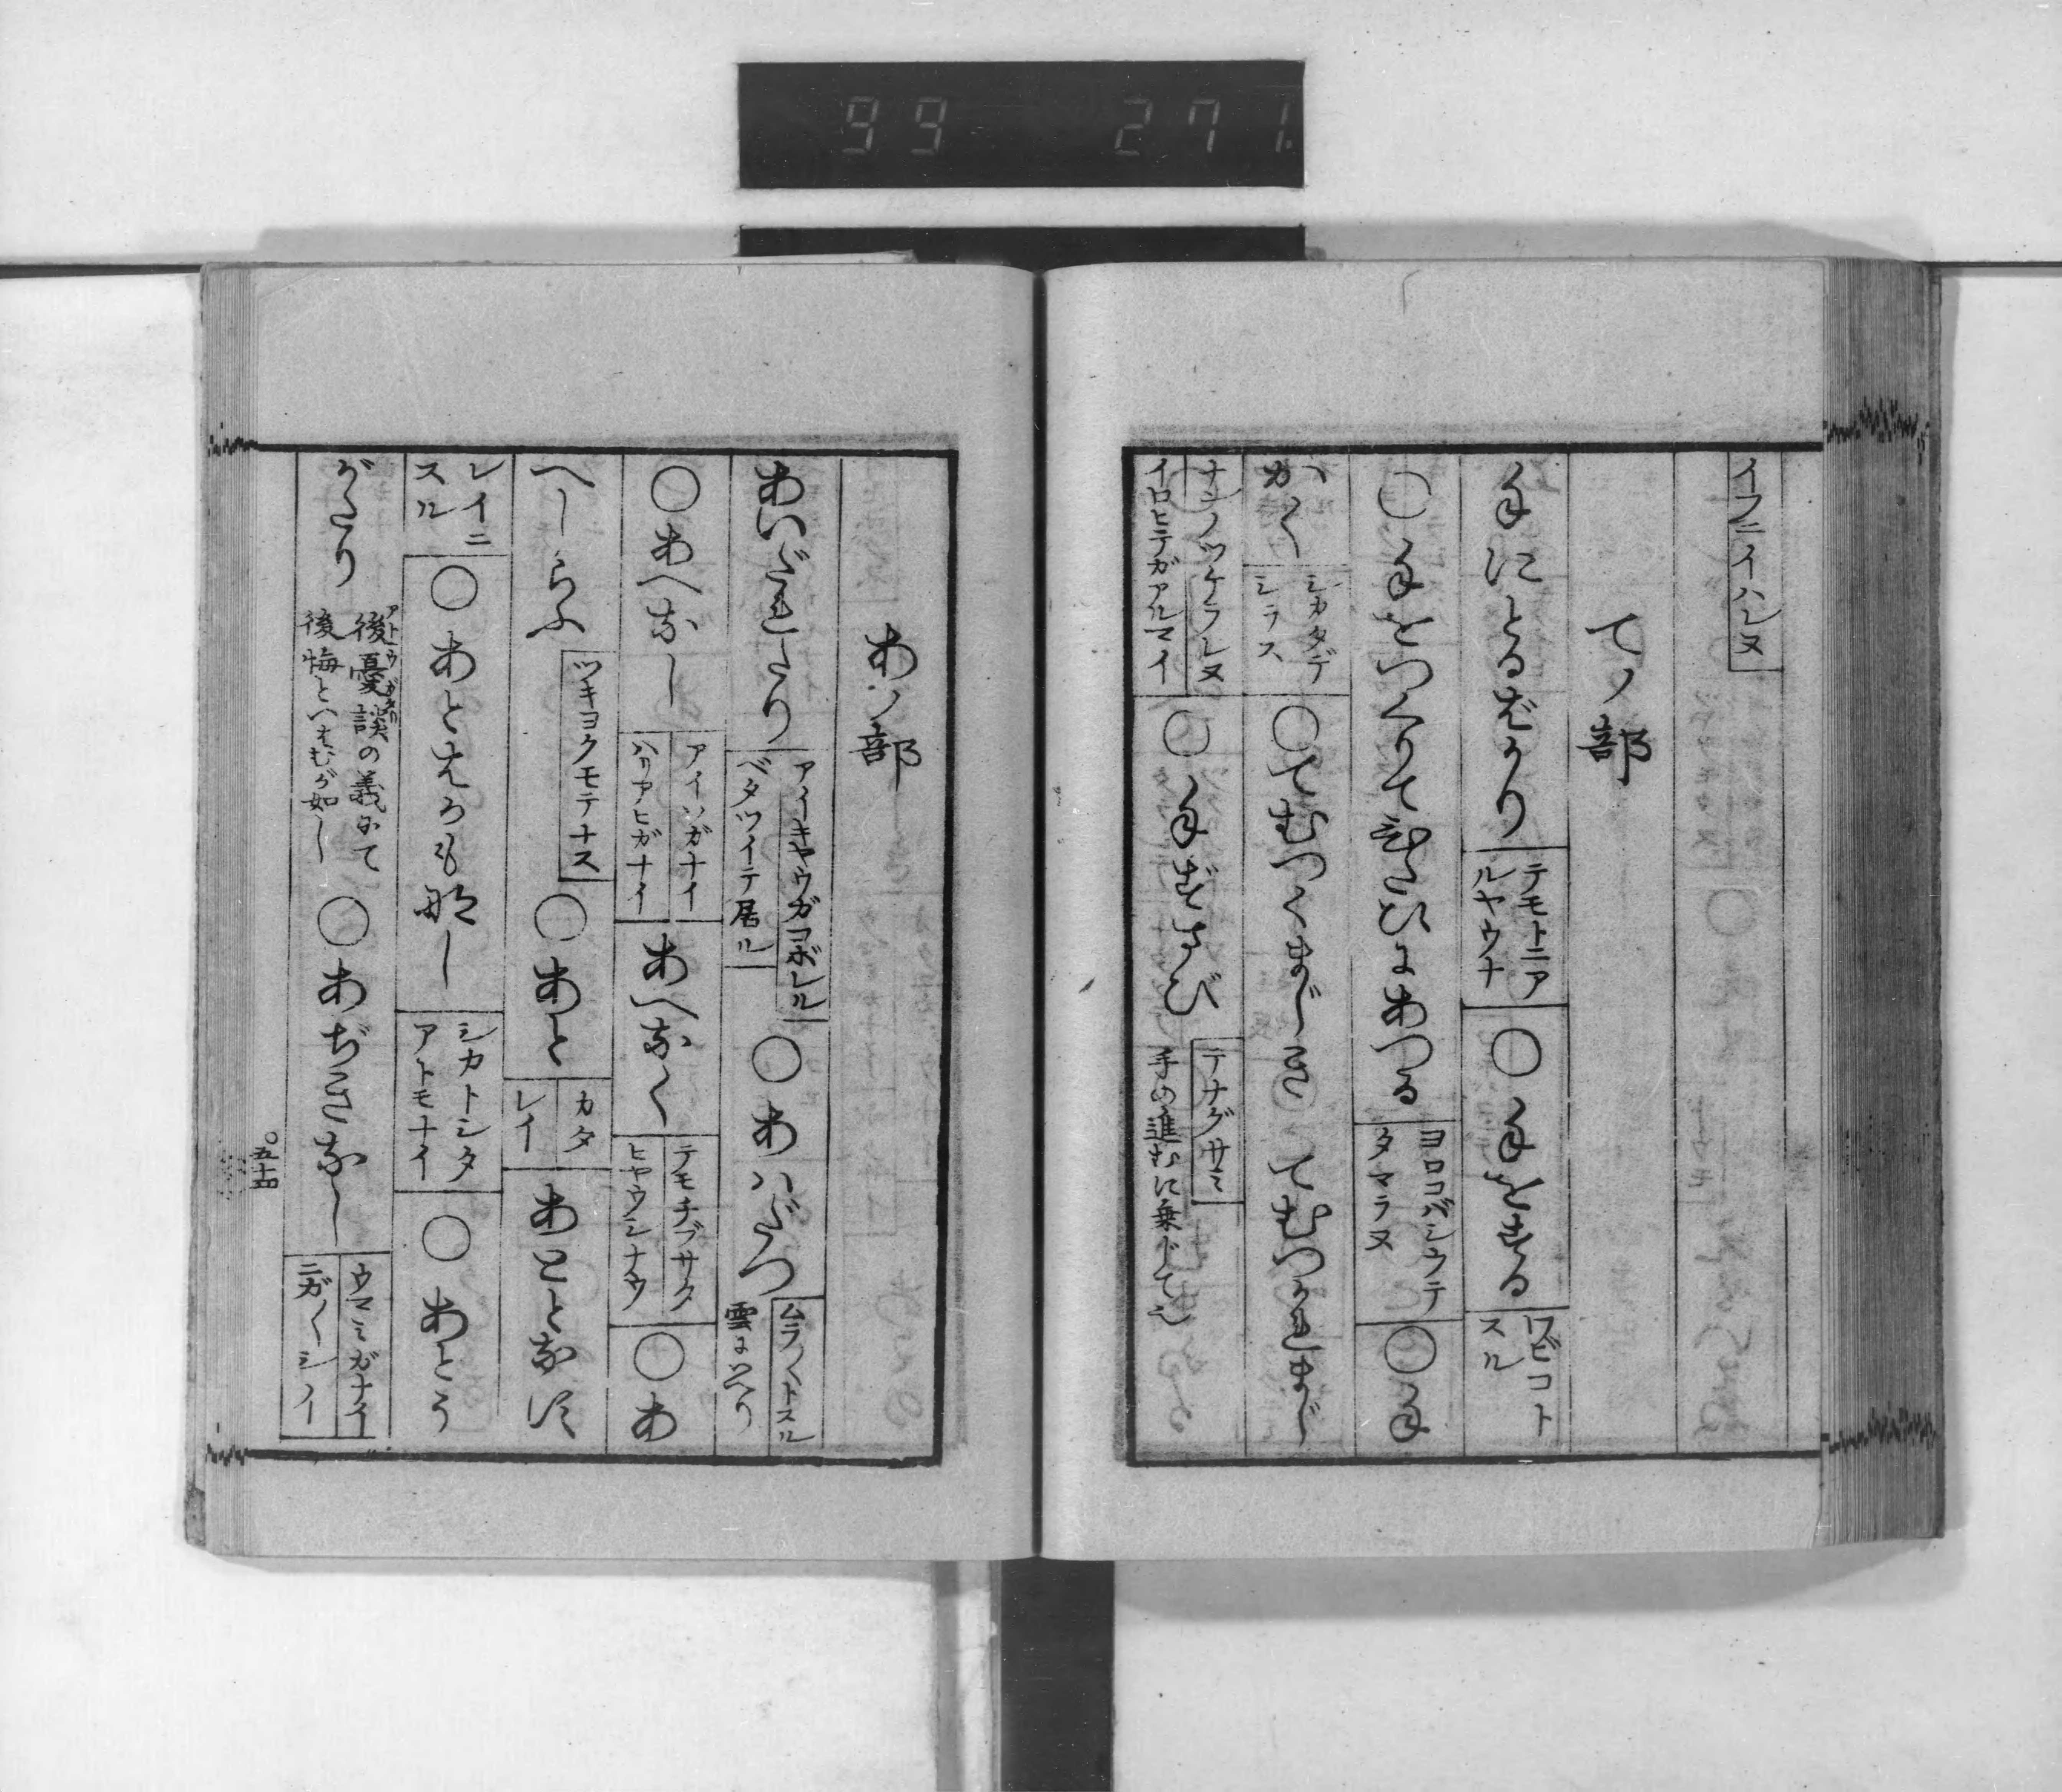 99 271.
イフニイハレヌ
てノ部
手にとるばかり
テモトニア
ルヤウナ
○手をする
ワビコト
スル
○手をつくりてひたひにあつる
ヨロコバシウテ
タマラヌ
○手
ハかく
シカタデ
シラス
○てむつくまじき
てむつかれまじ
ナンノツケラレヌ
イロヒテガアルマイ
○手ずさび
テナグサミ
手の進むに乗じて也
あノ部
あいだれたり
アイキヤウガコボレル
ベタツイテ居ル
○あハだつ
ムラ〳〵トスル
雲にいへり
○あへなし
アイソガナイ
ハリアヒガナイ
あへなく
テモチブサタ
ヒヤウシナウ
○あ
へしらふ
ツキヨクモテナス
○あと
カタ
レイ
あとゝなす
レイニ
スル
○あとはかも無し
シカトシタ
アトモナイ
○あとう
がたり
後憂談の義にて
アトウガタリ
後悔といはむが如し
○あぢきなし
ウマミガナイ
ニガ〳〵シイ
○五十四